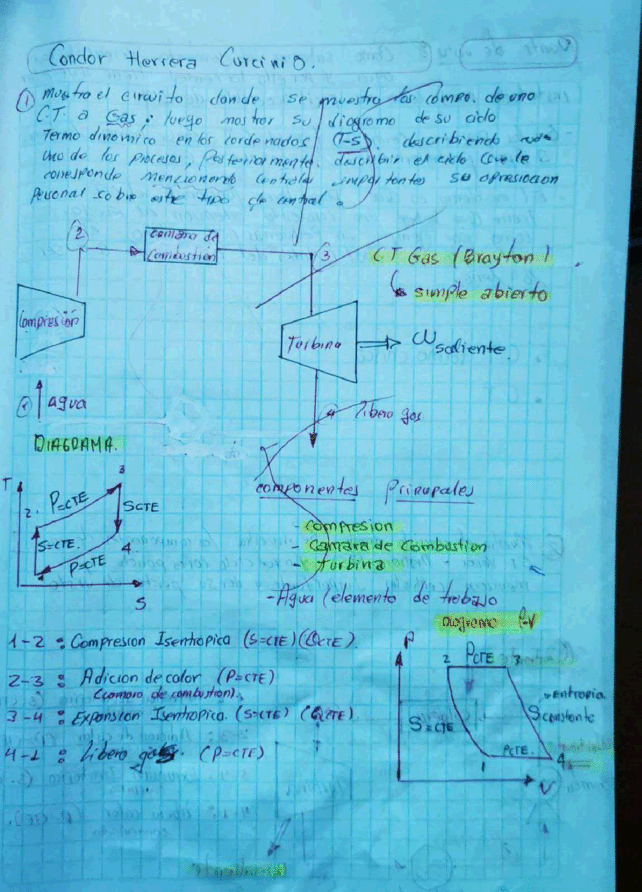 Condor Herrera Curcini O.
① muestra el circuito donde se muestra los compo. de uno
C.T. a Gas; luego mostrar su diagrama de su ciclo
Termo dinamico en los cordenados (T-s). describiendo
Uno de los procesos, Posteriormente. describir el ciclo que le
coresponde mencionando Centrales importantes su apresiacion
Personal sobre este tipo de central.
2
camara de
Combustión
3
C.T Gas (Brayton)
simple abierto
Compresión
Turbina
W saliente.
1 Agua
4 libero gas
DIAGRAMA.
T
2
P=CTE
3
S=CTE.
SCTE
P=CTE
4
1
S
componentes Principales
- compresion
- camara de combustion
- turbina
- Agua (elemento de trabajo
Diagrama P-V
1-2 : Compresion Isentropica (S=CTE) (QCTE)
2-3 : Adicion de calor (P=CTE)
(camara de combustion).
3-4 : Expansion Isentropica. (S=CTE) (QCTE)
4-1 : libero gas (P=CTE)
P
2
PCTE
3
entropia
S constante
S=CTE
PCTE.
1
4
V